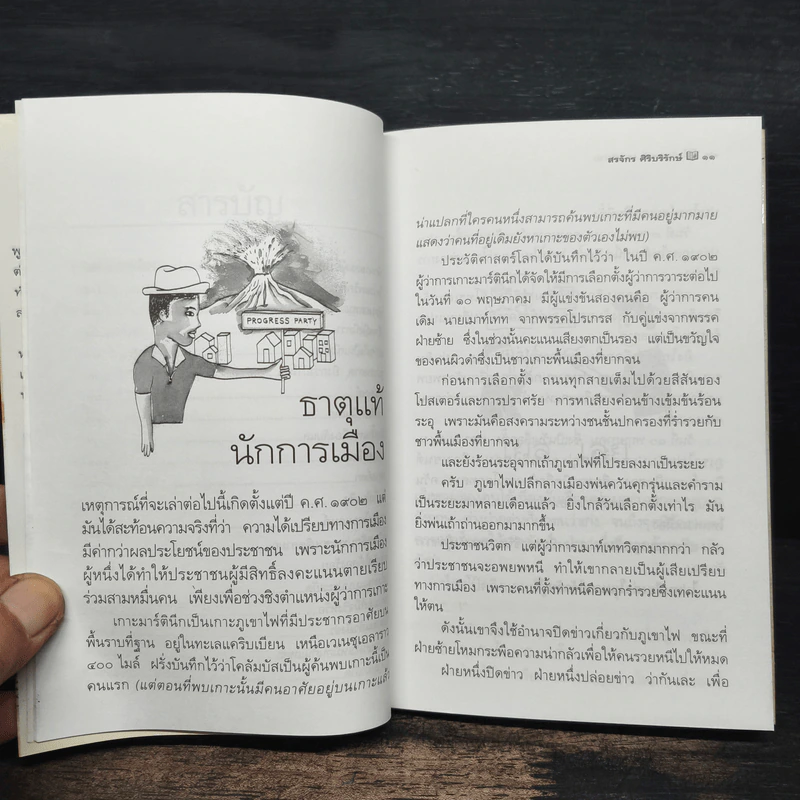 สารบัญ
PROGRESS PARTY
ธาตุแท้
นักการเมือง
เหตุการณ์ที่จะเล่าต่อไปนี้เกิดตั้งแต่ปี ค.ศ. ๑๙๐๒ แต่
มันได้สะท้อนความจริงที่ว่า ความได้เปรียบทางการเมือง
มีค่ากว่าผลประโยชน์ของประชาชน เพราะนักการเมือง
ผู้หนึ่งได้ทำให้ประชาชนผู้มีสิทธิ์ลงคะแนนตายเรียบ
ร่วมสามหมื่นคน เพียงเพื่อช่วงชิงตำแหน่งผู้ว่าการเกาะ
เกาะมาร์ตินีกเป็นเกาะภูเขาไฟที่มีประชากรอาศัยบน
พื้นราบที่ฐาน อยู่ในทะเลแคริบเบียน เหนือเวเนซุเอลาราว
๔๐๐ ไมล์ ฝรั่งบันทึกไว้ว่าโคลัมบัสเป็นผู้ค้นพบเกาะนี้เป็น
คนแรก (แต่ตอนที่พบเกาะนั้นมีคนอาศัยอยู่บนเกาะแล้ว
สรจักร ศิริบริรักษ์ ๑๑
น่าแปลกที่ใครคนหนึ่งสามารถค้นพบเกาะที่มีคนอยู่มากมาย
แสดงว่าคนที่อยู่เดิมยังหาเกาะของตัวเองไม่พบ)
ประวัติศาสตร์โลกได้บันทึกไว้ว่า ในปี ค.ศ. ๑๙๐๒
ผู้ว่าการเกาะมาร์ตินีกได้จัดให้มีการเลือกตั้งผู้ว่าการวาระต่อไป
ในวันที่ ๑๐ พฤษภาคม มีผู้แข่งขันสองคนคือ ผู้ว่าการคน
เดิม นายเมาท์เทท จากพรรคโปรเกรส กับคู่แข่งจากพรรค
ฝ่ายซ้าย ซึ่งในช่วงนั้นคะแนนเสียงตกเป็นรอง แต่เป็นขวัญใจ
ของคนผิวดำซึ่งเป็นชาวเกาะพื้นเมืองที่ยากจน
ก่อนการเลือกตั้ง ถนนทุกสายเต็มไปด้วยสีสันของ
โปสเตอร์และการปราศรัย การหาเสียงค่อนข้างเข้มข้นร้อน
ระอุ เพราะมันคือสงครามระหว่างชนชั้นปกครองที่ร่ำรวยกับ
ชาวพื้นเมืองที่ยากจน
และยังร้อนระอุจากเถ้าภูเขาไฟที่โปรยลงมาเป็นระยะ
ครับ ภูเขาไฟเปลีกลางเมืองพ่นควันคุกรุ่นและคำราม
เป็นระยะมาหลายเดือนแล้ว ยิ่งใกล้วันเลือกตั้งเท่าไร มัน
ยิ่งพ่นเถ้าถ่านออกมามากขึ้น
ประชาชนวิตก แต่ผู้ว่าการเมาท์เททวิตกมากกว่า กลัว
ว่าประชาชนจะอพยพหนี ทำให้เขากลายเป็นผู้เสียเปรียบ
ทางการเมือง เพราะคนที่ตั้งท่าหนีคือพวกร่ำรวยซึ่งเทคะแนน
ให้ตน
ดังนั้นเขาจึงใช้อำนาจปิดข่าวเกี่ยวกับภูเขาไฟ ขณะที่
ฝ่ายซ้ายโหมกระพือความน่ากลัวเพื่อให้คนรวยหนีไปให้หมด
ฝ่ายหนึ่งปิดข่าว ฝ่ายหนึ่งปล่อยข่าว ว่ากันเละ เพื่อ